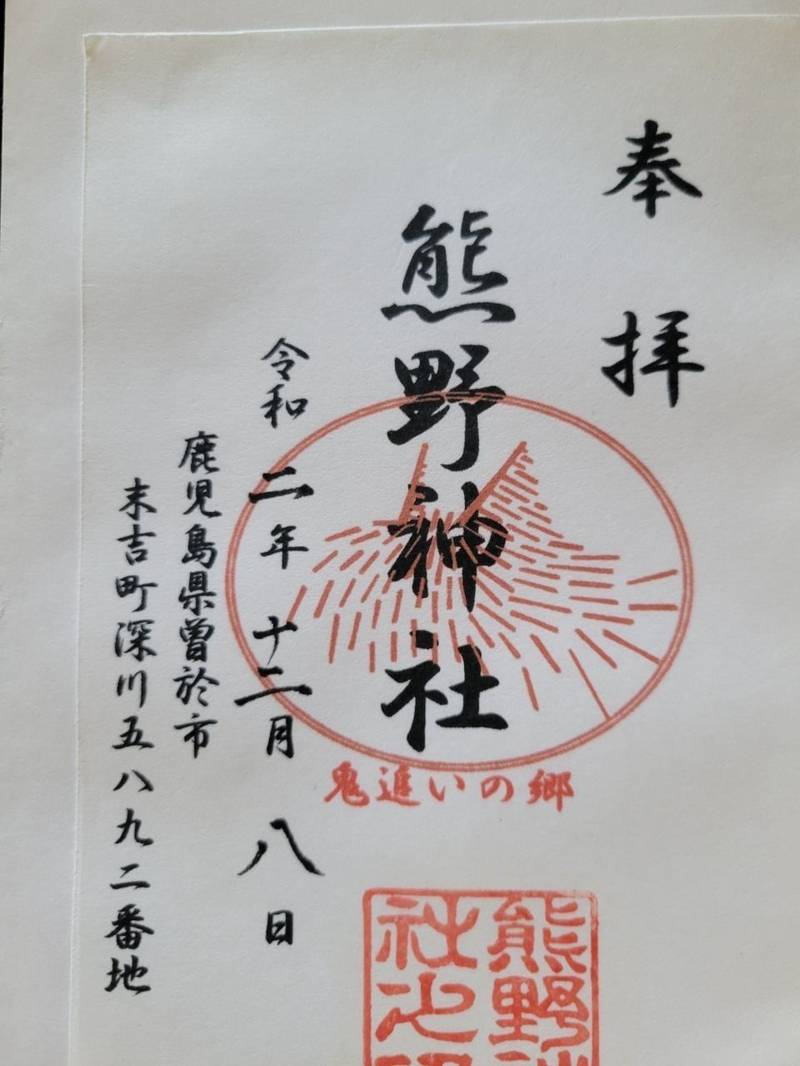 奉拝
熊野神社
令和二年十二月八日
鹿児島県曽於市
末吉町深川五八九二番地
鬼追いの郷
熊野神
社之印